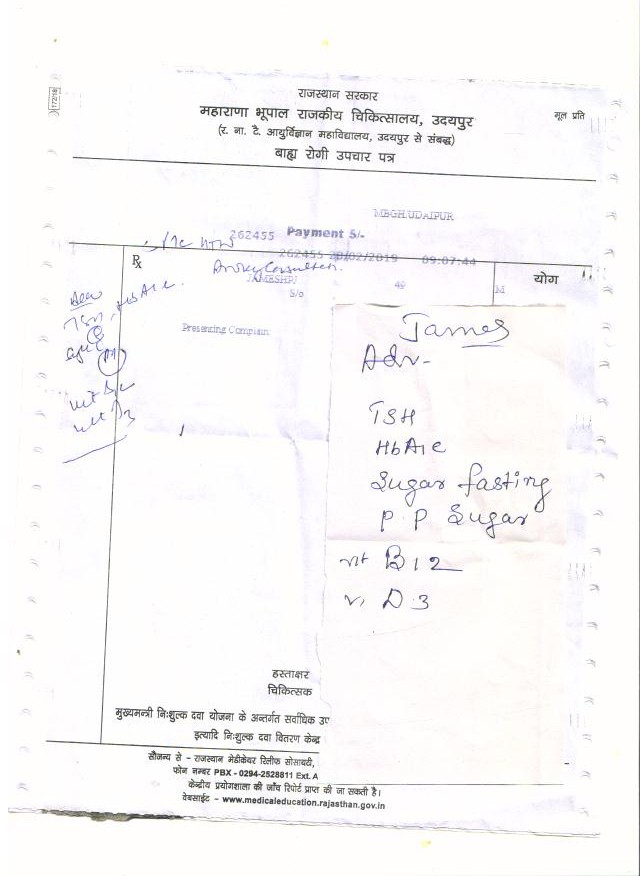 17218
राजस्थान सरकार
महाराणा भूपाल राजकीय चिकित्सालय, उदयपुर
मूल प्रति
(र. ना. टै. आयुर्विज्ञान महाविद्यालय, उदयपुर से संबद्ध)
बाह्य रोगी उपचार पत्र
MBGH.UDAIPUR
262455 Payment 5/-
262455 20/02/2019 09:07:44
℞
योग
S/o
49
M
HbA1c
Presenting Complain
James
Adv-
TSH
HbA1c
Sugar fasting
P.P Sugar
vit B12
v. D3
vit D3
हस्ताक्षर
चिकित्सक
मुख्यमन्त्री निःशुल्क दवा योजना के अन्तर्गत सर्वाधिक उप
इत्यादि निःशुल्क दवा वितरण केन्द्र
सौजन्य से - राजस्थान मेडीकेयर रिलीफ सोसायटी,
फोन नम्बर PBX - 0294-2528811 Ext. A
केन्द्रीय प्रयोगशाला की जाँच रिपोर्ट प्राप्त की जा सकती है।
वेबसाईट - www.medicaleducation.rajasthan.gov.in